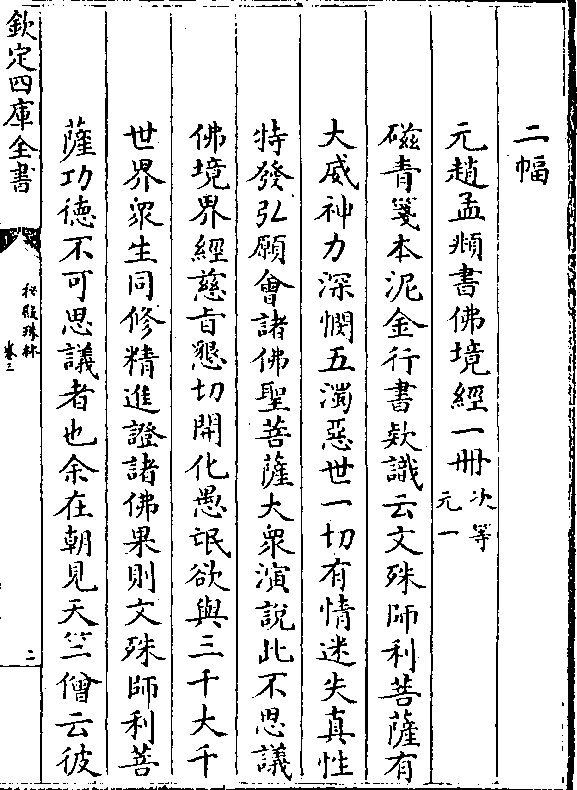 二幅
元趙孟頫書佛境經一冊次等元一
磁青箋本泥金行書欵識云文殊師利菩薩有
大威神力深憫五濁惡世一切有情迷失真性
特發弘願會諸佛聖菩薩大衆演說此不思議
佛境界經慈旨懇切開化愚氓欲與三千大千
世界衆生同修精進證諸佛果則文殊師利菩
薩功德不可思議者也余在朝見天竺僧云彼
欽定四庫全書
秘殿珠林
卷三
二